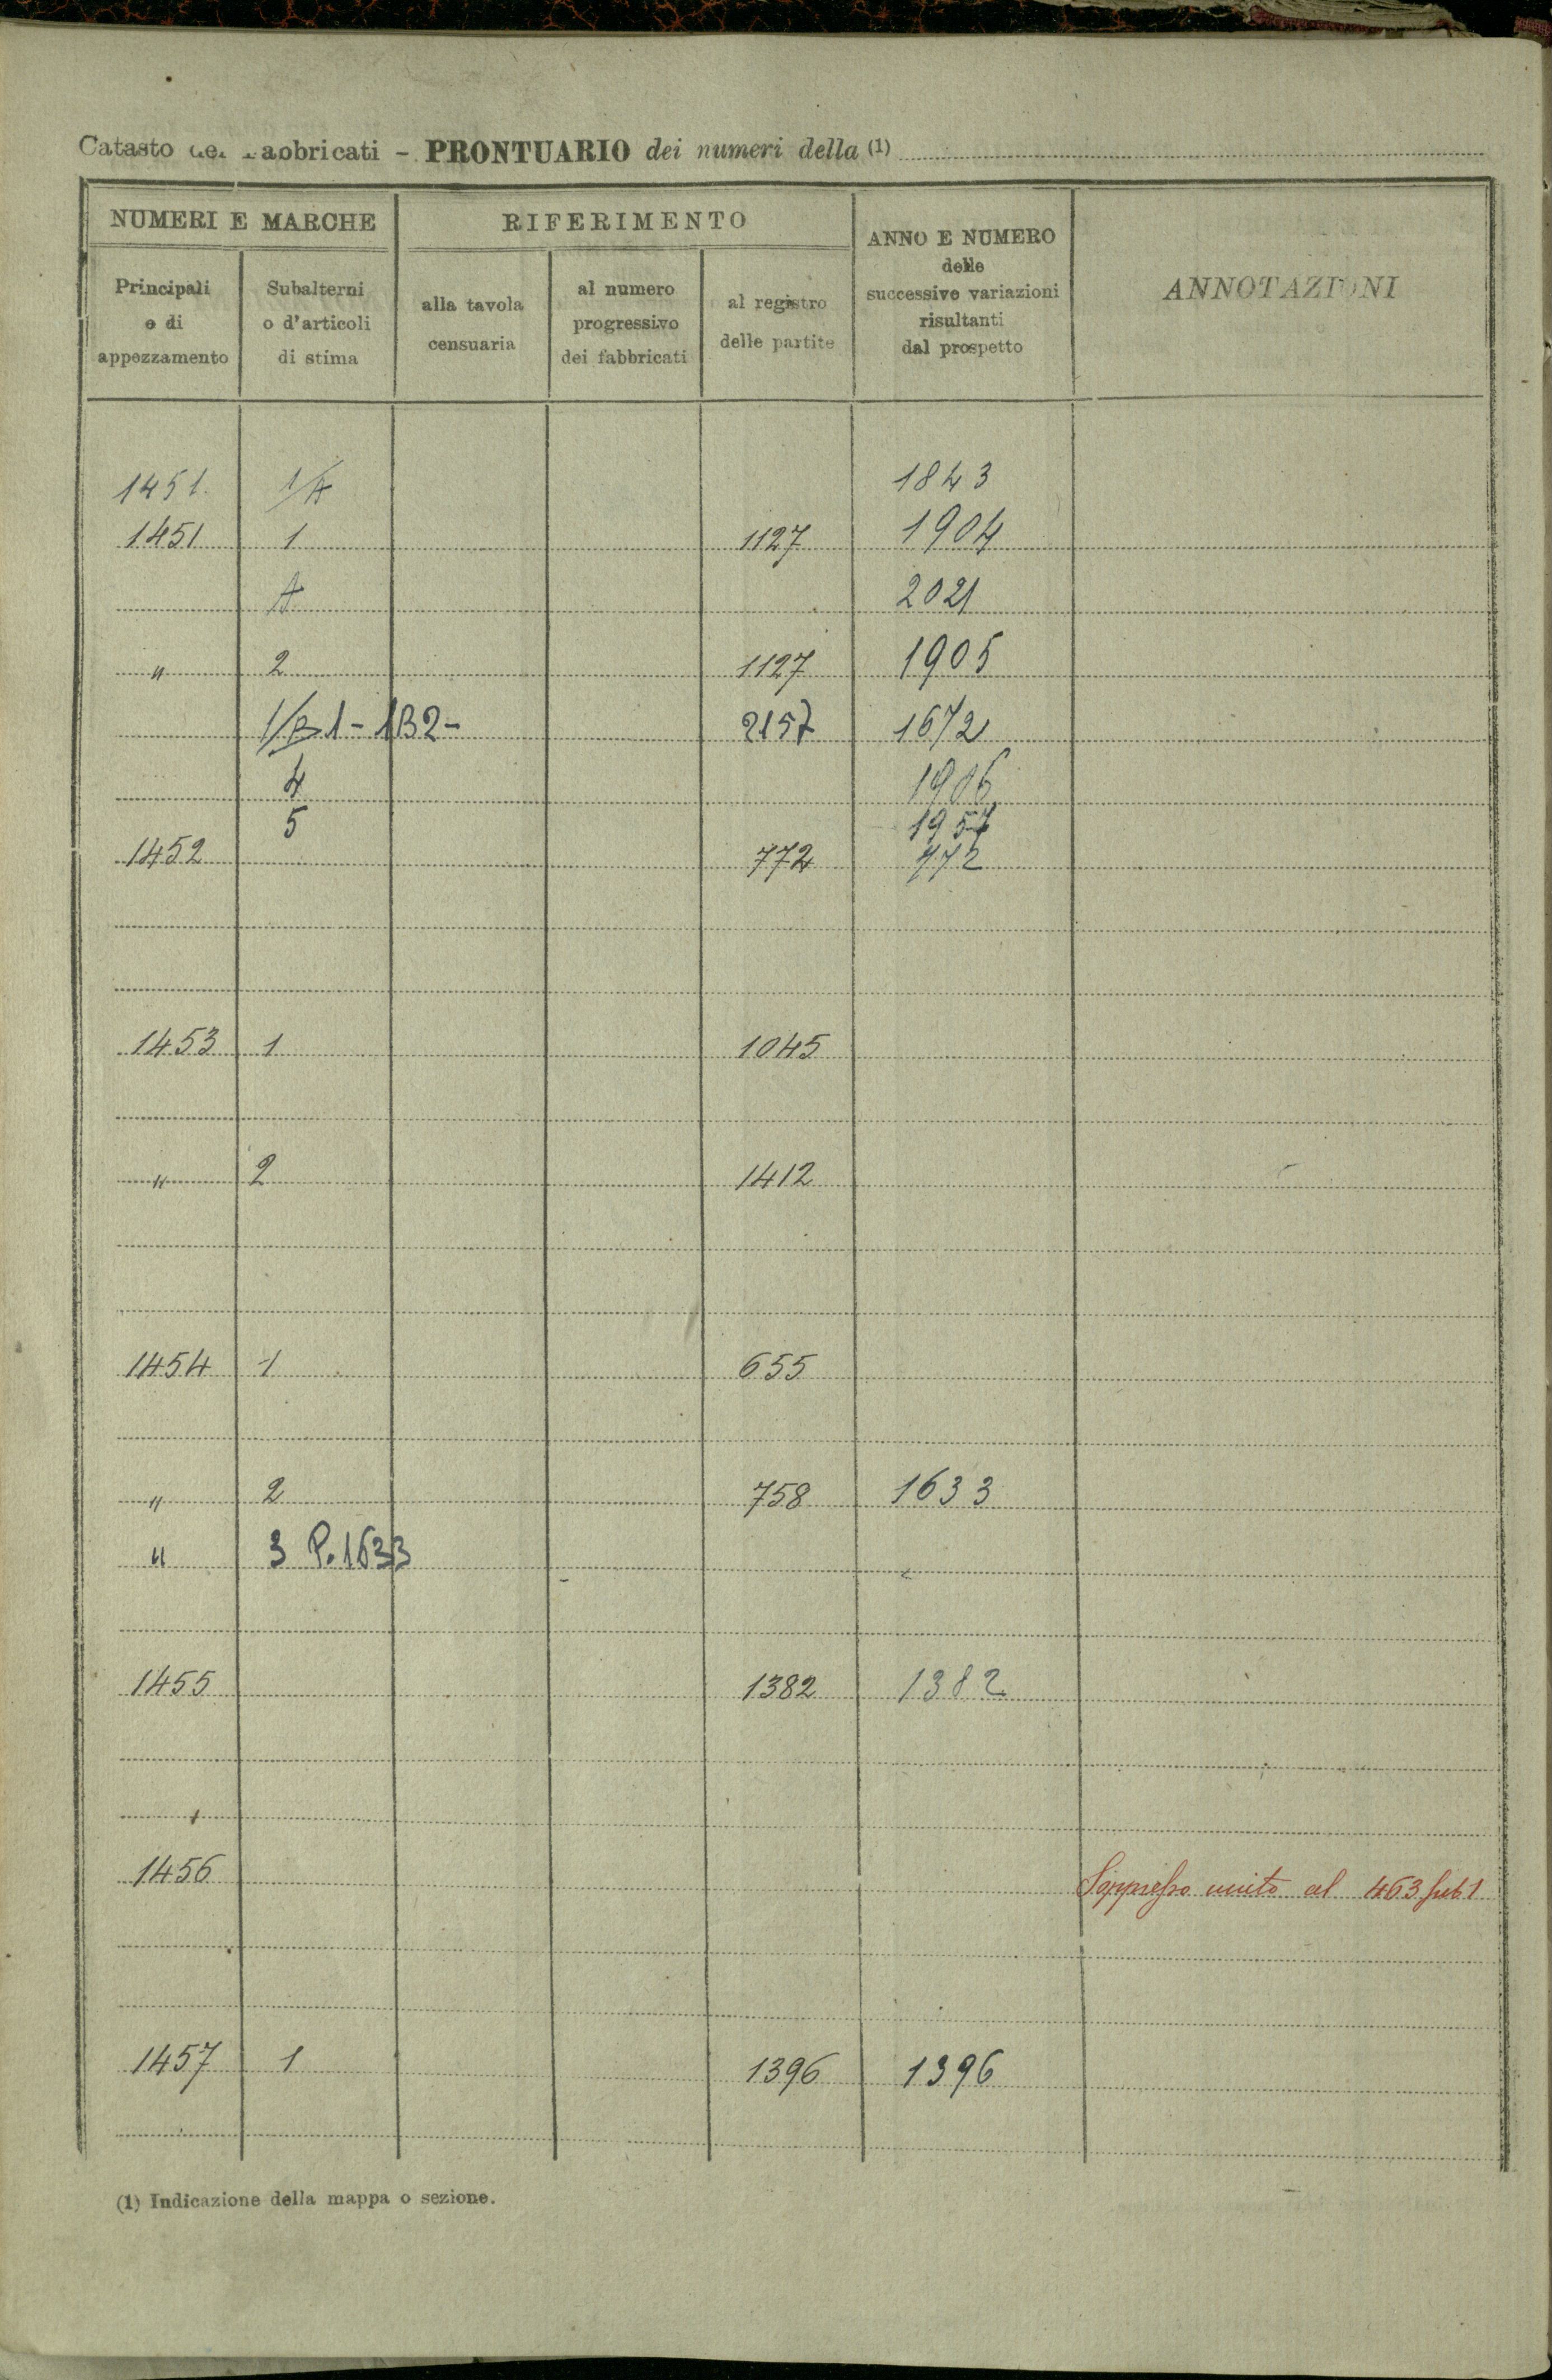 Catasto dei Fabbricati – PRONTUARIO dei numeri della (1)
NUMERI E MARCHE
RIFERIMENTO
ANNO E NUMERO
delle
successive variazioni
risultanti
dal prospetto
ANNOTAZIONI
Principali
e di
appezzamento
Subalterni
o d'articoli
di stima
alla tavola
censuaria
al numero
progressivo
dei fabbricati
al registro
delle partite
1451 1/A 1843
1451 1 1127 1904
A 2021
" 2 1127 1905
1/B1 - 1B2 - 2157 1672
4 1906
5 1957
1452 772 772
1453 1 1045
" 2 1412
1454 1 655
" 2 758 1633
" 3 P. 1633
1455 1382 1382
1456 Soppresso unito al 463 sub 1
1457 1 1396 1396
(1) Indicazione della mappa o sezione.